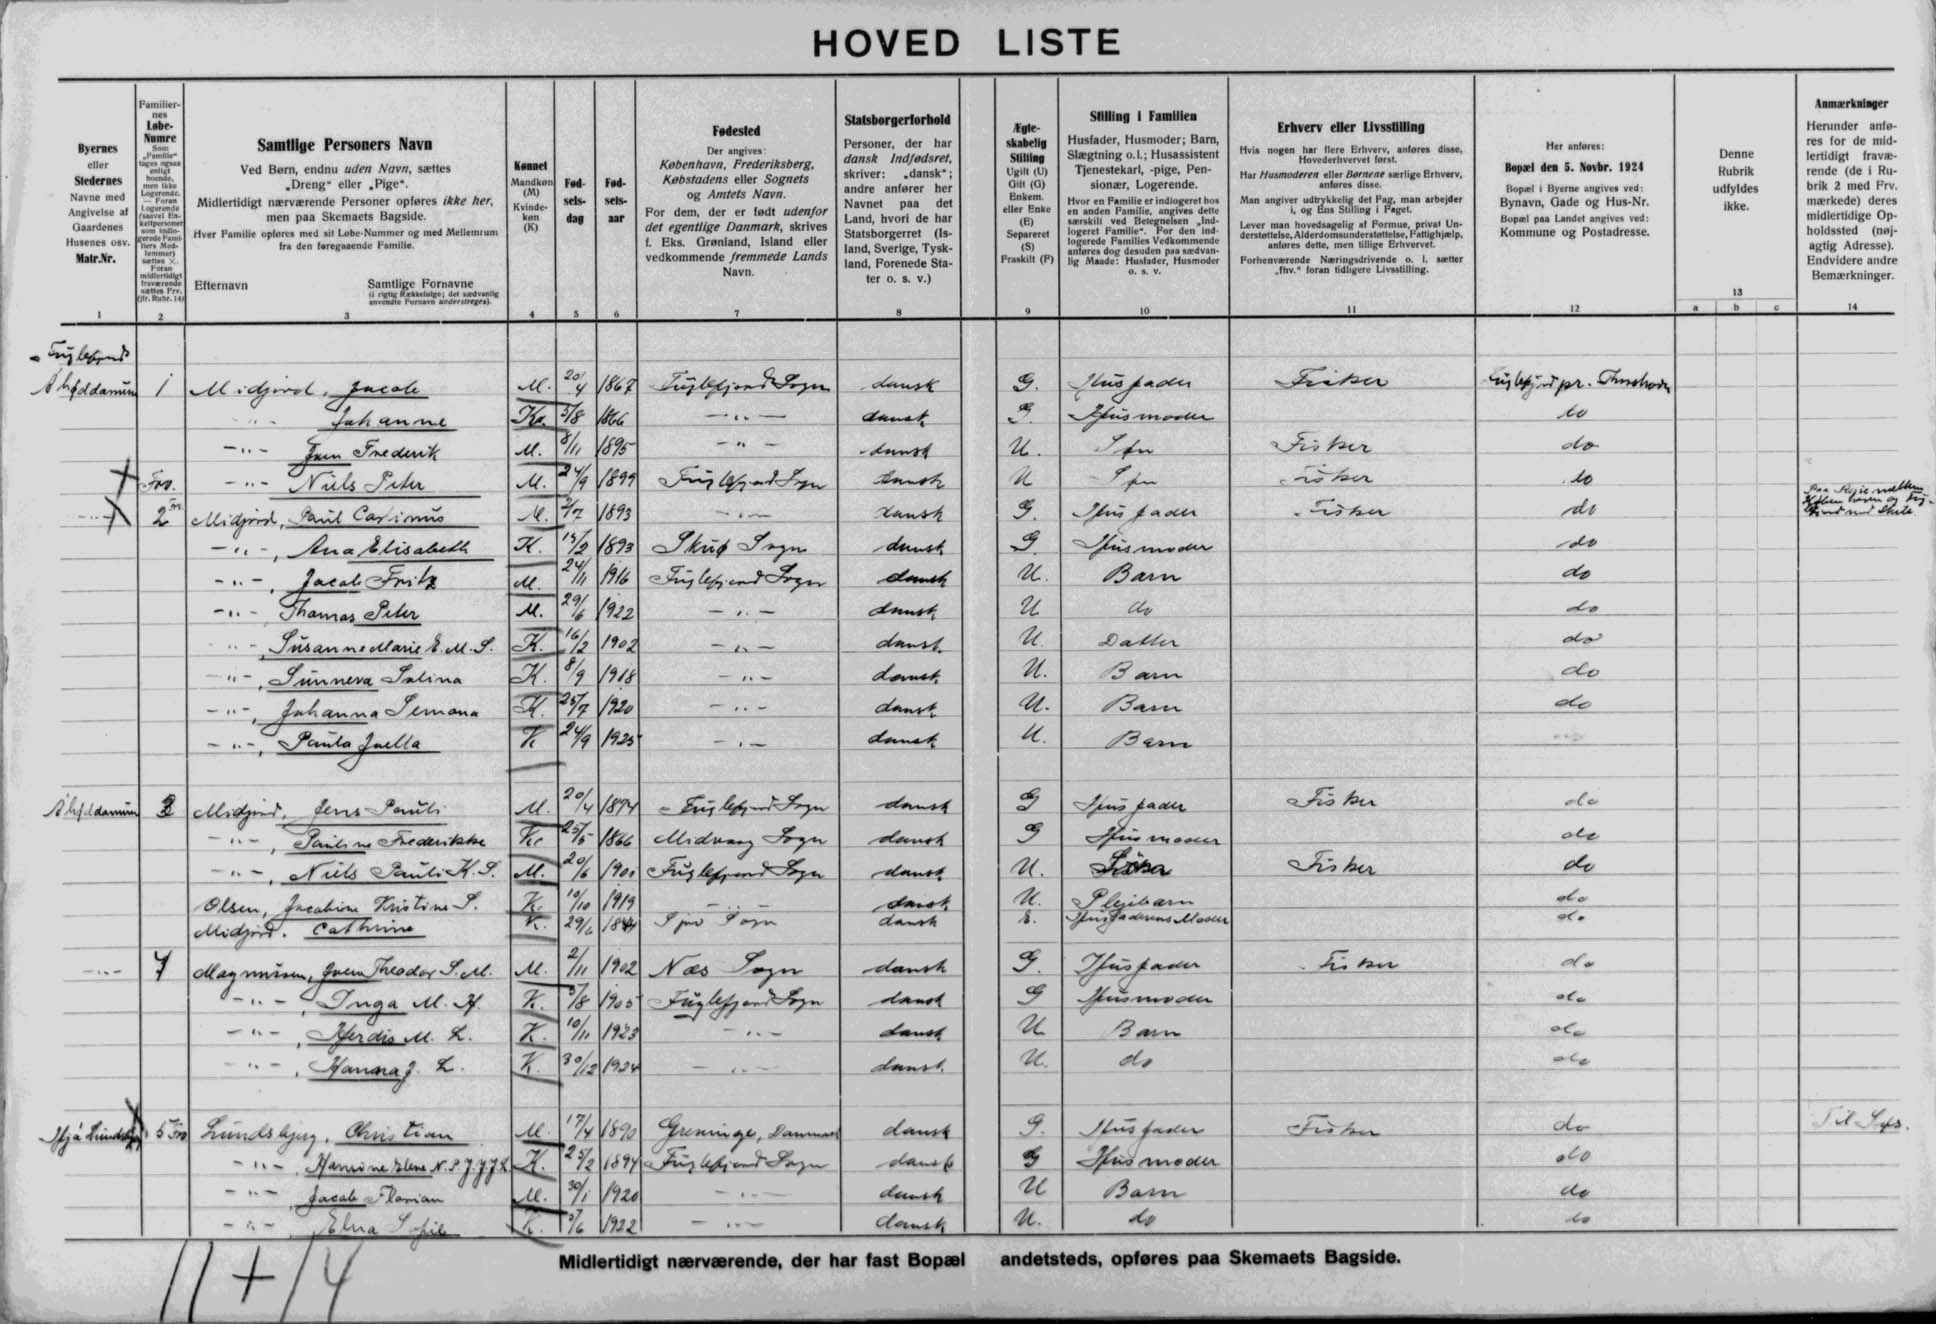 HOVED LISTE
Byernes
eller
Stedernes
Navne med
Angivelse af
Gaardenes
Husenes osv.
Matr.Nr.
1
Familier-
nes
Løbe-
Numre
Som
„Familie"
tages ogsaa
enligt
boende,
men ikke
Logerende.
— Foran
Logerende
(saavel En-
keltpersoner
som indlo-
gerede Fami-
liers Med-
lemmer)
sættes ×.
Foran
midlertidigt
fraværende
sættes Frv.
(jfr. Rubr. 14)
2
Samtlige Personers Navn
Ved Børn, endnu uden Navn, sættes
„Dreng" eller „Pige".
Midlertidigt nærværende Personer opføres ikke her,
men paa Skemaets Bagside.
Hver Familie opføres med sit Løbe-Nummer og med Mellemrum
fra den foregaaende Familie.
Efternavn Samtlige Fornavne
(i rigtig Rækkefølge; det sædvanlig
anvendte Fornavn understreges).
3
Kønnet
Mandkøn
(M)
Kvinde-
køn
(K)
4
Fød-
sels-
dag
5
Fød-
sels-
aar
6
Fødested
Der angives:
København, Frederiksberg,
Købstadens eller Sognets
og Amtets Navn.
For dem, der er født udenfor
det egentlige Danmark, skrives
f. Eks. Grønland, Island eller
vedkommende fremmede Lands
Navn.
7
Statsborgerforhold
Personer, der har
dansk Indfødsret,
skriver: „dansk";
andre anfører her
Navnet paa det
Land, hvori de har
Statsborgerret (Is-
land, Sverige, Tysk-
land, Forenede Sta-
ter o. s. v.)
8
Ægte-
skabelig
Stilling
Ugift (U)
Gift (G)
Enkem.
eller Enke
(E)
Separeret
(S)
Fraskilt (F)
9
Stilling i Familien
Husfader, Husmoder; Barn,
Slægtning o.l.; Husassistent
Tjenestekarl, -pige, Pen-
sionær, Logerende.
Hvor en Familie er indlogeret hos
en anden Familie, angives dette
særskilt ved Betegnelsen „Ind-
logeret Familie". For den ind-
logerede Families Vedkommende
anføres dog desuden paa sædvan-
lig Maade: Husfader, Husmoder
o. s. v.
10
Erhverv eller Livsstilling
Hvis nogen har flere Erhverv, anføres disse,
Hovederhvervet først.
Har Husmoderen eller Børnene særlige Erhverv,
anføres disse.
Man angiver udtrykkelig det Fag, man arbejder
i, og Ens Stilling i Faget.
Lever man hovedsagelig af Formue, privat Un-
derstøttelse, Alderdomsunderstøttelse, Fattighjælp,
anføres dette, men tillige Erhvervet.
Forhenværende Næringsdrivende o. l. sætter
„fhv." foran tidligere Livsstilling.
11
Her anføres:
Bopæl den 5. Novbr. 1924
Bopæl i Byerne angives ved:
Bynavn, Gade og Hus-Nr.
Bopæl paa Landet angives ved:
Kommune og Postadresse.
12
Denne
Rubrik
udfyldes
ikke.
13
a b c
Anmærkninger
Herunder anfø-
res for de mid-
lertidigt fravæ-
rende (de i Ru-
brik 2 med Frv.
mærkede) deres
midlertidige Op-
holdssted (nøj-
agtig Adresse).
Endvidere andre
Bemærkninger.
14
Fuglefjord
1 Midjord, Jacob M. 20/4 1867 Fuglefjord Sogn dansk G. Husfader Fisker Fuglefjord pr. Thorshavn
-"- Johanne K. 5/8 1866 -"- dansk G. Husmoder do
-"- Frederik M. 8/11 1895 -"- dansk U. Søn Fisker do
Frv. -"- Niels Peter M. 24/9 1899 Fuglefjord Sogn dansk U Søn Fisker do
-"- 2 Midjord, Paul Casimus M. 2/7 1893 -"- dansk G. Husfader Fisker do
-"-, Ana Elisabeth K. 14/2 1893 Skuø Sogn dansk G. Husmoder do
-"-, Jacob Fritz M. 24/11 1916 Fuglefjord Sogn dansk U. Barn do
-"-, Thomas Peter M. 29/6 1922 -"- dansk U do do
-"-, Susanne Marie E. M. S. K. 16/2 1902 -"- dansk U. Datter do
-"-, Sunneva Salina K. 8/9 1918 -"- dansk U. Barn do
-"-, Johanna Semona K. 25/7 1920 -"- dansk U. Barn do
-"-, Paula Juella K 24/9 1925 -"- dansk U. Barn
3 Midjord, Jens Pauli M. 20/4 1874 Fuglefjord Sogn dansk G Husfader Fisker do
-"-, Pauline Frederikke K. 25/5 1866 Midvaag Sogn dansk G Husmoder do
-"-, Niels Pauli K. S. M. 20/6 1901 Fuglefjord Sogn dansk U. Fisker do
Olsen, Jacobine Kristine S. K. 10/10 1919 -"- dansk U. Plejebarn do
Midjord. Cathrine K. 29/6 1844 Sogn dansk E. Husfaderens Moder do
-"- 4 Magnussen, Theodor S. M. M. 2/11 1902 Næs Sogn dansk G. Husfader Fisker do
-"-, Inga M. H. K. 5/8 1905 Fuglefjord Sogn dansk G Husmoder do
-"-, Herdis M. L. K. 10/11 1923 -"- dansk U Barn do
-"-, Hanna J. L. K. 30/12 1924 -"- dansk U. do do
5 Frv Lundsbjerg, Christian M. 17/4 1890 Greninge, Danmark dansk G. Husfader Fisker do Til Søs.
-"-, K. 25/2 1894 Fuglefjord Sogn dansk G Husmoder do
-"- Jacob Florian M. 30/1 1920 -"- dansk U Barn do
-"- Elna Sofie K. 5/6 1922 -"- dansk U. do do
Midlertidigt nærværende, der har fast Bopæl andetsteds, opføres paa Skemaets Bagside.
11 + 14